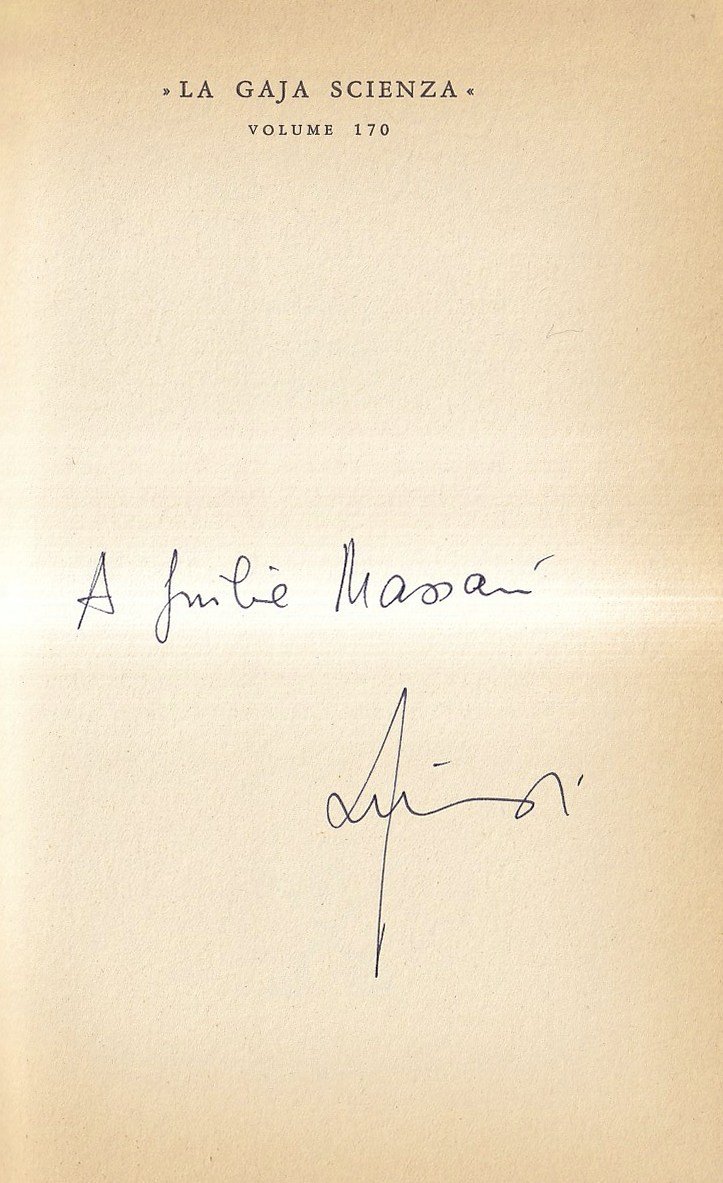 »LA GAJA SCIENZA«
VOLUME 170
A Giulia Massari